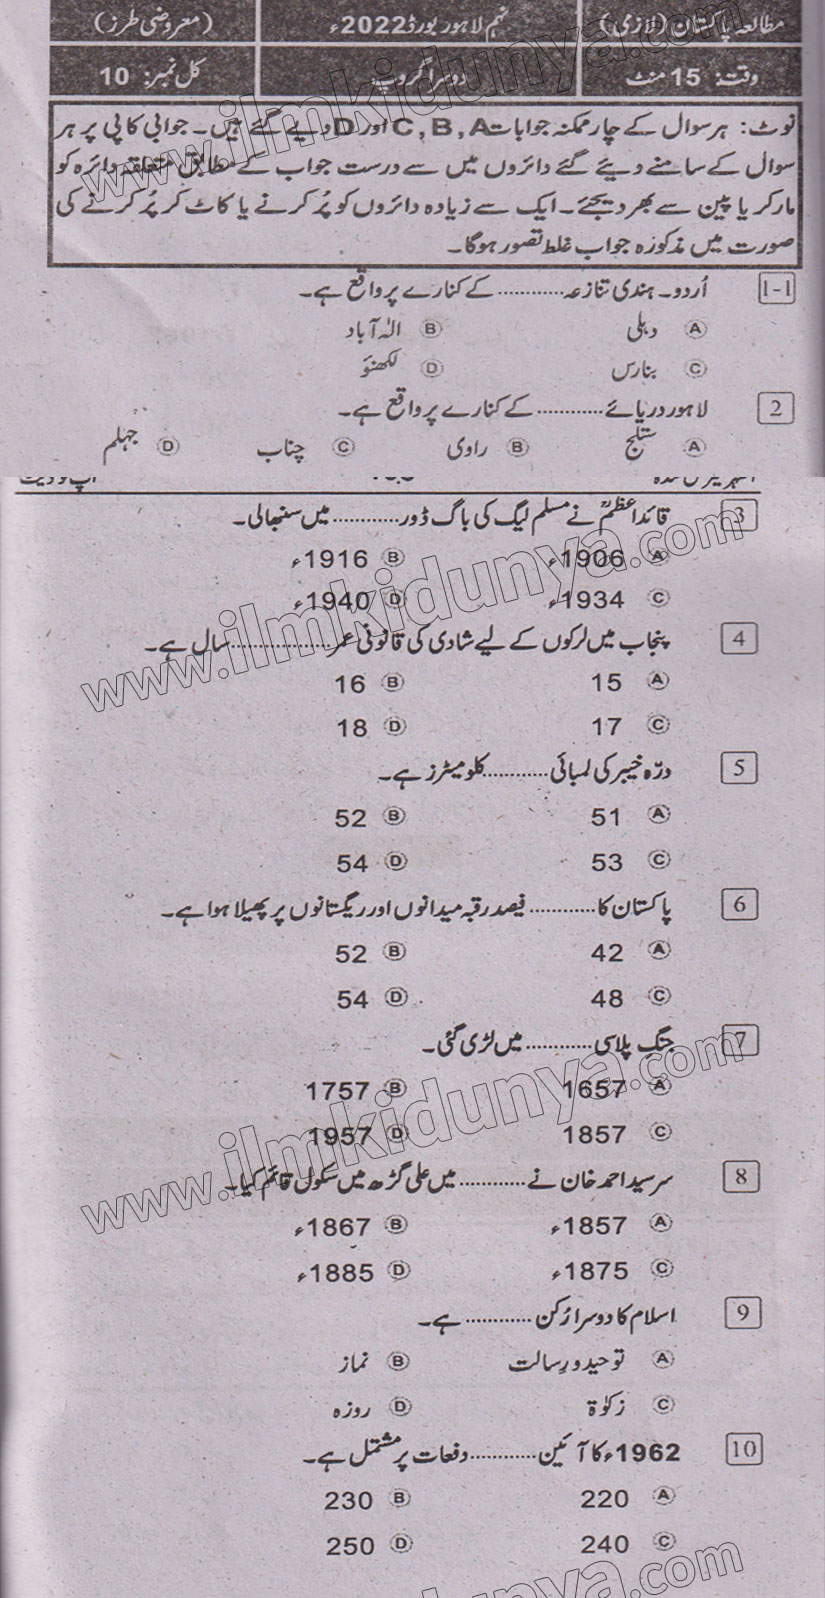 مطالعہ پاکستان (لازمی) نہم لاہور بورڈ 2022ء (معروضی طرز)
وقت: 15 منٹ دوسرا گروپ: کل نمبر: 10
نوٹ: ہر سوال کے چار ممکنہ جوابات C, B, A اور D دیے گئے ہیں۔ جوابی کاپی پر ہر
سوال کے سامنے دیئے گئے دائروں میں سے درست جواب کے مطابق متعلقہ دائرہ کو
مارکر یا پین سے بھر دیجئے۔ ایک سے زیادہ دائروں کو پُر کرنے یا کاٹ کر پُر کرنے کی
صورت میں مذکورہ جواب غلط تصور ہوگا۔
1-1 اُردو۔ ہندی تنازعہ............ کے کنارے پر واقع ہے۔
A دہلی B الہ آباد
C بنارس D لکھنؤ
2 لاہور دریائے............ کے کنارے پر واقع ہے۔
A ستلج B راوی C چناب D جہلم
3 قائداعظمؒ نے مسلم لیگ کی باگ ڈور............ میں سنبھالی۔
A 1906ء B 1916ء
C 1934ء D 1940ء
4 پنجاب میں لرکوں کے لیے شادی کی قانونی عمر............ سال ہے۔
A 15 B 16
C 17 D 18
5 درّہ خیبر کی لمبائی............ کلومیٹرز ہے۔
A 51 B 52
C 53 D 54
6 پاکستان کا............ فیصد رقبہ میدانوں اور ریگستانوں پر پھیلا ہوا ہے۔
A 42 B 52
C 48 D 54
7 جنگِ پلاسی............ میں لڑی گئی۔
A 1657 B 1757
C 1857 D 1957
8 سرسید احمد خان نے............ میں علی گڑھ میں سکول قائم کیا۔
A 1857ء B 1867ء
C 1875ء D 1885ء
9 اسلام کا دوسرا رُکن............ ہے۔
A توحید و رسالت B نماز
C زکوٰۃ D روزہ
10 1962ء کا آئین............ دفعات پر مشتمل ہے۔
A 220 B 230
C 240 D 250
www.ilmkidunya.com
www.ilmkidunya.com
www.ilmkidunya.com